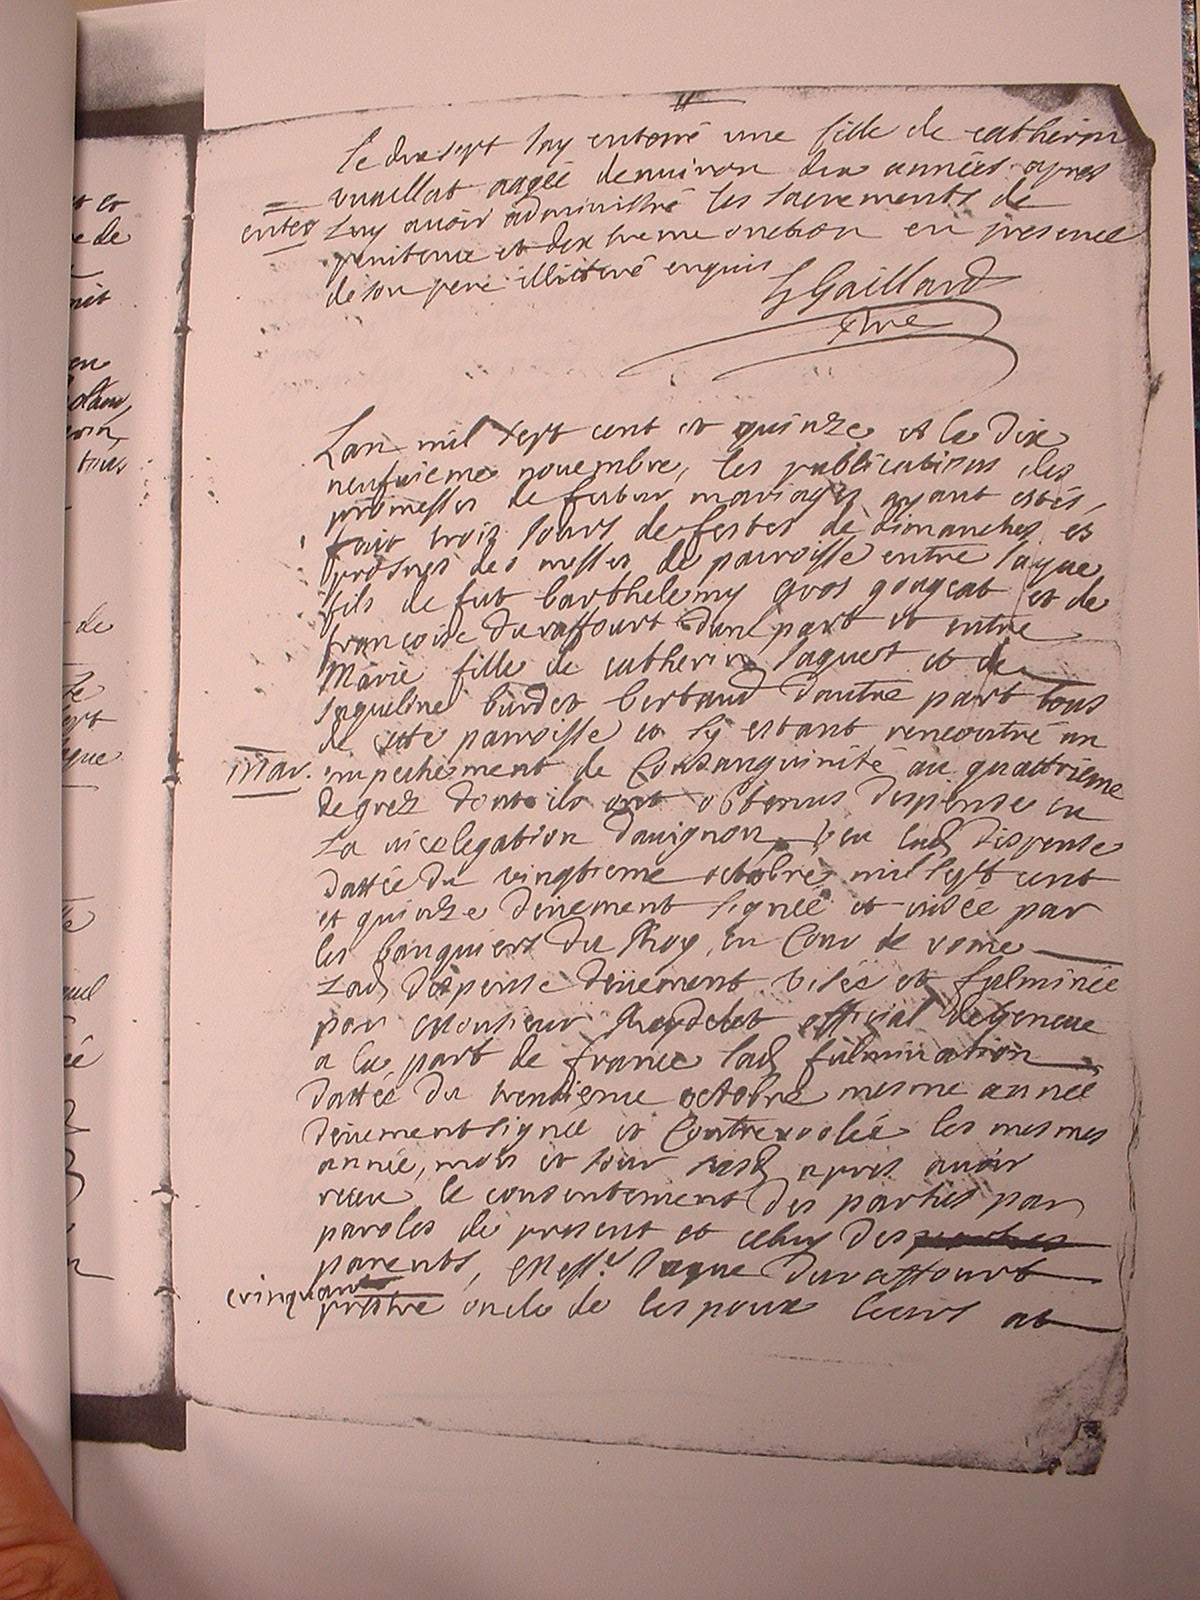 le dix sept J'ay enterré une fille de catherin
vuaillat aagée denuiron dix années apres
enter
Luy auoir administré les sacrements de
penitence et dextreme onction en presence
de son pere illiteré enquis
Gaillard
Lan mil sept cent et quinze et le dix
neufuieme novembre, les publications des
promesses de futur mariages ayant estés,
fait trois Jours de festes de dimanches es
prosnes des messes de parroisse entre Jaque
fils de fut barthelemy gros gougeat et de
francoise duraffourt d'une part et entre
Marie fille de catherin Jaquet et de
Jaqueline burdet bertaud dautre part tous
de cette parroisse et sy estant rencontré un
mar.
empechement de Consanguinité au quattrieme
degrez dont ils ont obtenus dispense en
La vicelegation dauignon, veu lad. dispense
dattée du vingtieme octobre mil sept cent
et quinze deüement signée et visée par
les banquiers du Roy, en Cour de rome
Lad. dispense deüement visée et fulminée
par Monsieur Reydelet official de Geneue
a la part de france lad. fulmination
dattée du trentieme octobre mesme année
deüement signée et Contreroolée les mesmes
année, mois et Jour susd. apres auoir
receu le consentement des parties par
paroles de present et celuy des
parents, Messe. Jaque duraffourt
prestre oncle de lespoux leurs at